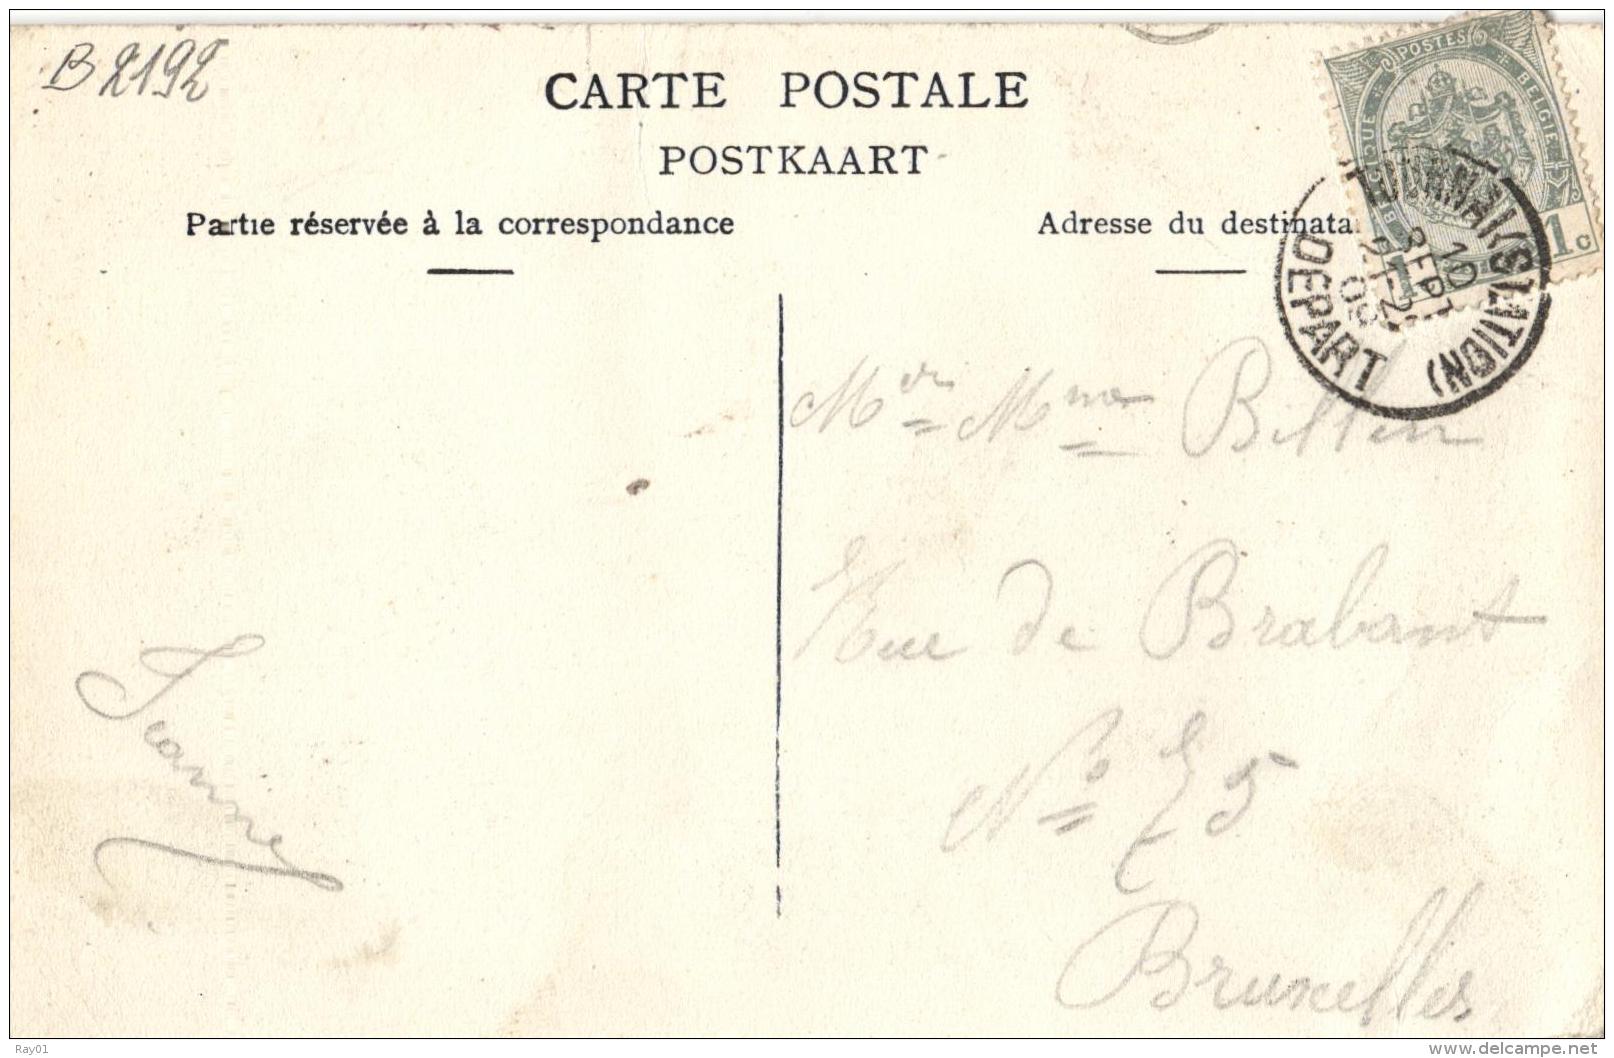 B 2192
CARTE POSTALE
POSTKAART
Partie réservée à la correspondance
Adresse du destinata
POSTES
BELGIQUE
BELGIE
1 1 c
TOURNAI (STATION)
10
SEPT
21-22
09
DEPART
Mr Mme Billen
Rue de Brabant
No 75
Bruxelles
Jeanne
Ray01
www.delcampe.net